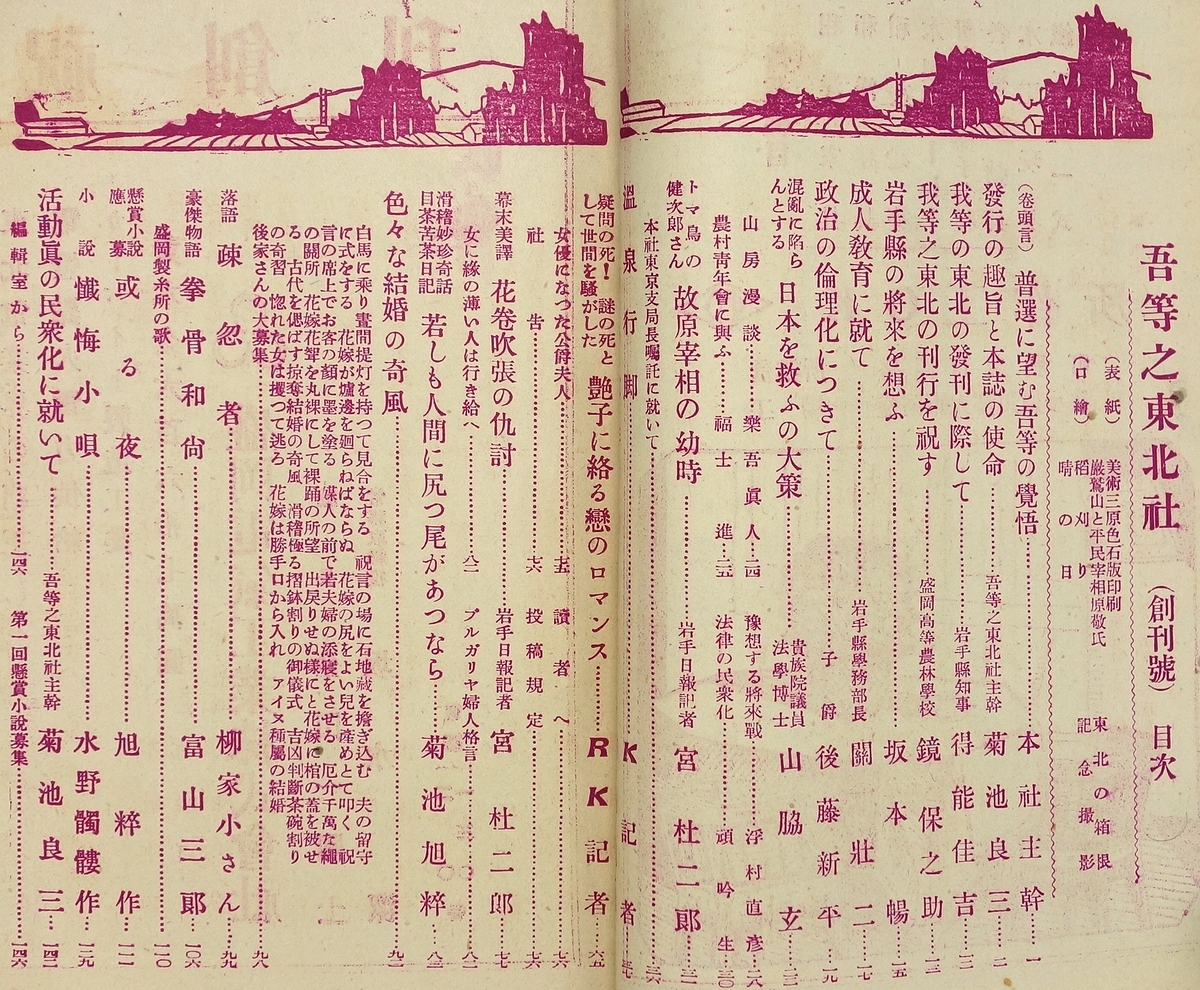 吾等之東北社 (創刊號) 目次
(表紙) 美術三原色石版印刷
巖鷲山と平民宰相原敬氏 東北の箱根
(口繪) 稻刈り 記念撮影
晴の日
(卷頭言) 普選に望む吾等の覺悟 本社主幹 一
發行の趣旨と本誌の使命 吾等之東北社主幹 菊池良三 二
我等の東北の發刊に際して 岩手縣知事 得能佳吉
我等之東北の刊行を祝す 盛岡高等農林學校 鏡保之助
岩手縣の將來を想ふ 坂本暢 一五
成人敎育に就て 岩手縣學務部長 關壯二 一七
政治の倫理化につきて 子爵 後藤新平 一九
混亂に陷らんとする 日本を救ふの大策 貴族院議員 法學博士 山脇玄
山房漫談 樂吾眞人 二四 豫想する將來戰 浮村直彦 二八
農村靑年會に與ふ 福士進 二五 法律の民衆化 頑吟生 三〇
トマ鳥の健次郎さん 故原宰相の幼時 岩手日報記者 宮杜二郎
本社東京支局長囑託に就いて
溫泉行脚 K記者
疑問の死!謎の死として世間を騷がした 艷子に絡る戀のロマンス RK記者 六五
女優になつた公爵夫人 七五 讀者へ 七六
社告 七六 投稿規定 七六
幕末美譚 花卷吹張の仇討 岩手日報記者 宮杜二郎 七七
女に緣の薄い人は行き給へ 八二 ブルガリヤ婦人格言 八二
滑稽妙珍奇話 目茶苦茶日記 若しも人間に尻つ尾があつなら 菊池旭粹 八三
色々な結婚の奇風 九二
白馬に乘り晝間提灯を持つて見合をする 祝言の場に石地藏を擔ぎ込む 夫の留守
に式をする 花嫁が爐邊を廻らねばならぬ 花嫁の尻をよい兒を產めとて叩く 祝
言の席上でお客の顏に墨を塗る 媒人の前で若夫婦の添寢をさせる 厄介千萬な繩
の關所 花嫁花聟を丸裸にして裸踊の所望 出戾りせぬ樣にと花嫁に棺の蓋を被せ
る 古代を偲ばす掠奪結婚の奇風 滑稽極る摺鉢割りの御儀式 吉凶判斷茶碗割り
の奇習 惚れた女は攫つて逃る 花嫁は勝手口から入れ アイヌ種屬の結婚
後家さんの大募集 九八
落語 疎忽者 柳家小さん 九九
豪傑物語 拳骨和尙 富山三郎 一〇六
盛岡製糸所の歌 一一〇
懸賞小說應募 或る夜 旭粹作 一一一
小說 懺悔小唄 水野髑髏作 一二九
活動眞の民衆化に就いて 吾等之東北社主幹 菊池良三 一四二
編輯室から 一四六 第一回懸賞小說募集 一四六